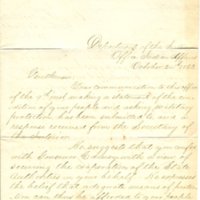 Department of the
Office Indian Affairs
October 2nd 1863
Gentlemen
Your communication to this office
of the 9th making a statement of the con
dition of your people and asking military
protection has been submitted to, and a
response received from the Secretary of
the Interior.
He suggests that you confer
with Governor with a view of
securing the cooperation of the State
Authorities in your behalf. He expresses
the belief that adequate means of protec
tion can thus be afforded to your people